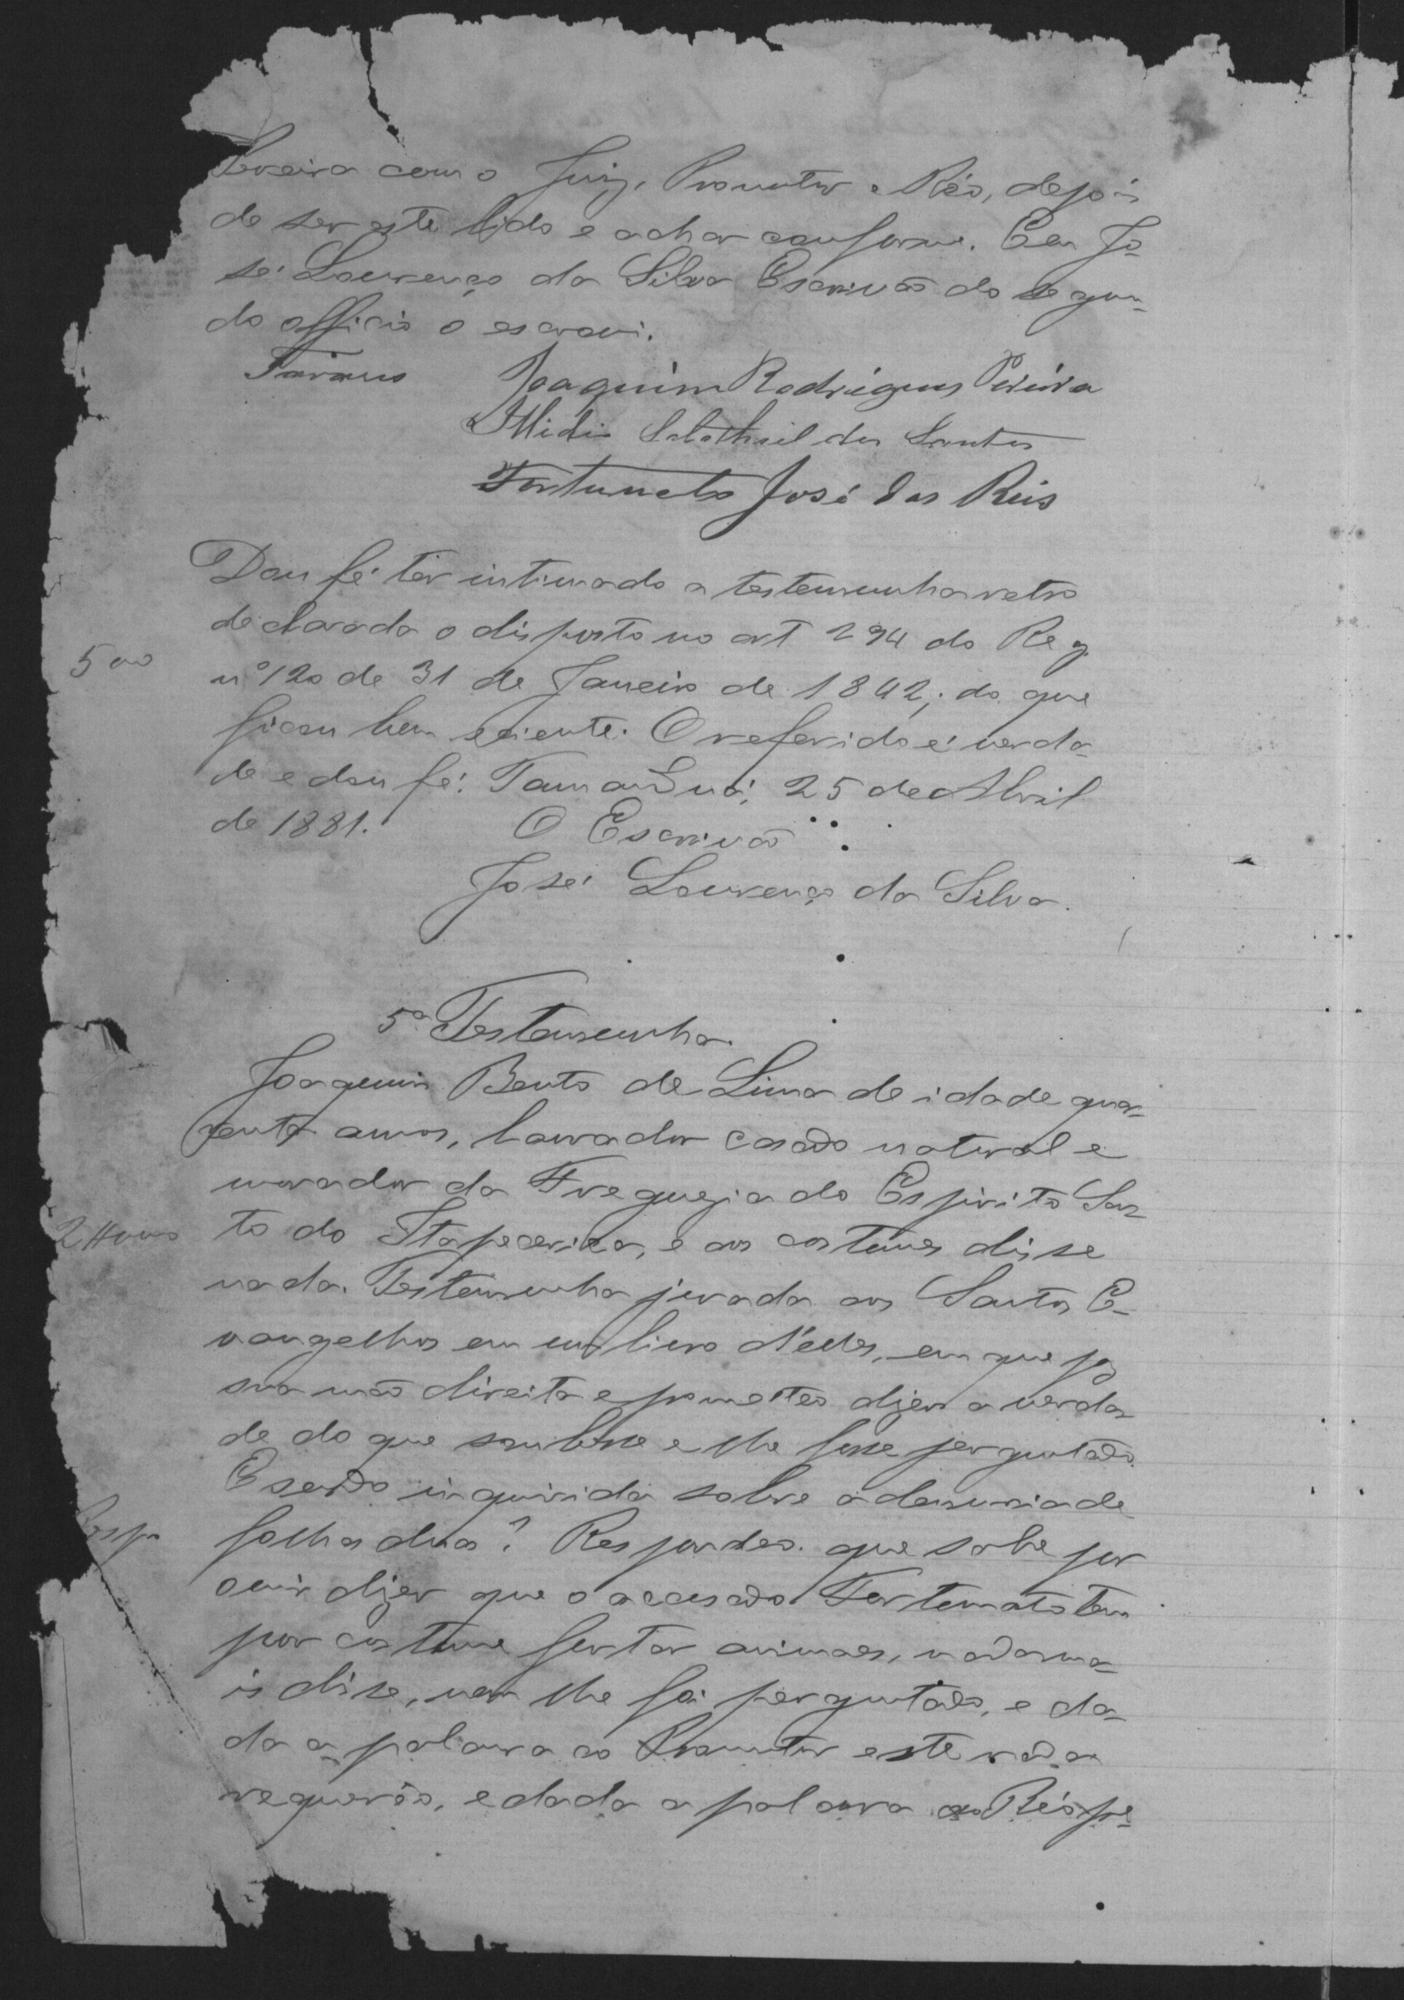 Pereira com o Juiz, Promutor e Réo, depois
de ser este lido e achar conforme. Eu Jo-
sé Lourenço da Silva Escrivão do segun-
do officio o escrevi.
Joaquim Rodrigues Pereira
dos Santos
Fortunato José dos Reis
Dou fé ter intimado a testemunha retro
declarada o disposto no art 294 do Reg.
500
nº 120 de 31 de Janeiro de 1842, do que
ficou bem sciente. O referido é verda-
de e dou fé. Tamanduá, 25 de Abril
de 1881. O Escrivão
José Lourenço da Silva.
5ª Testemunha.
Joaquim Bento de Lima de idade qua-
renta annos, lavrador casado natural e
morador da Freguezia do Espirito San-
to do Itapecerica, e aos costumes disse
nada. Testemunha jurada aos Santos E-
vangelhos em um livro d'elles, em que poz
sua mão direita e prometteo dizer a verda-
de do que soubesse e lhe fosse perguntado.
E sendo inquirida sobre a denuncia de
folhas duas? Respondeo. que sabe por
ouvir dizer que o accusado Fortunato tem
por costume furtar animaes, nada ma-
is disse, nem lhe foi perguntado, e da-
da a palavra ao Promutor este nada
requereo, e dada a palavra ao Réo pe-